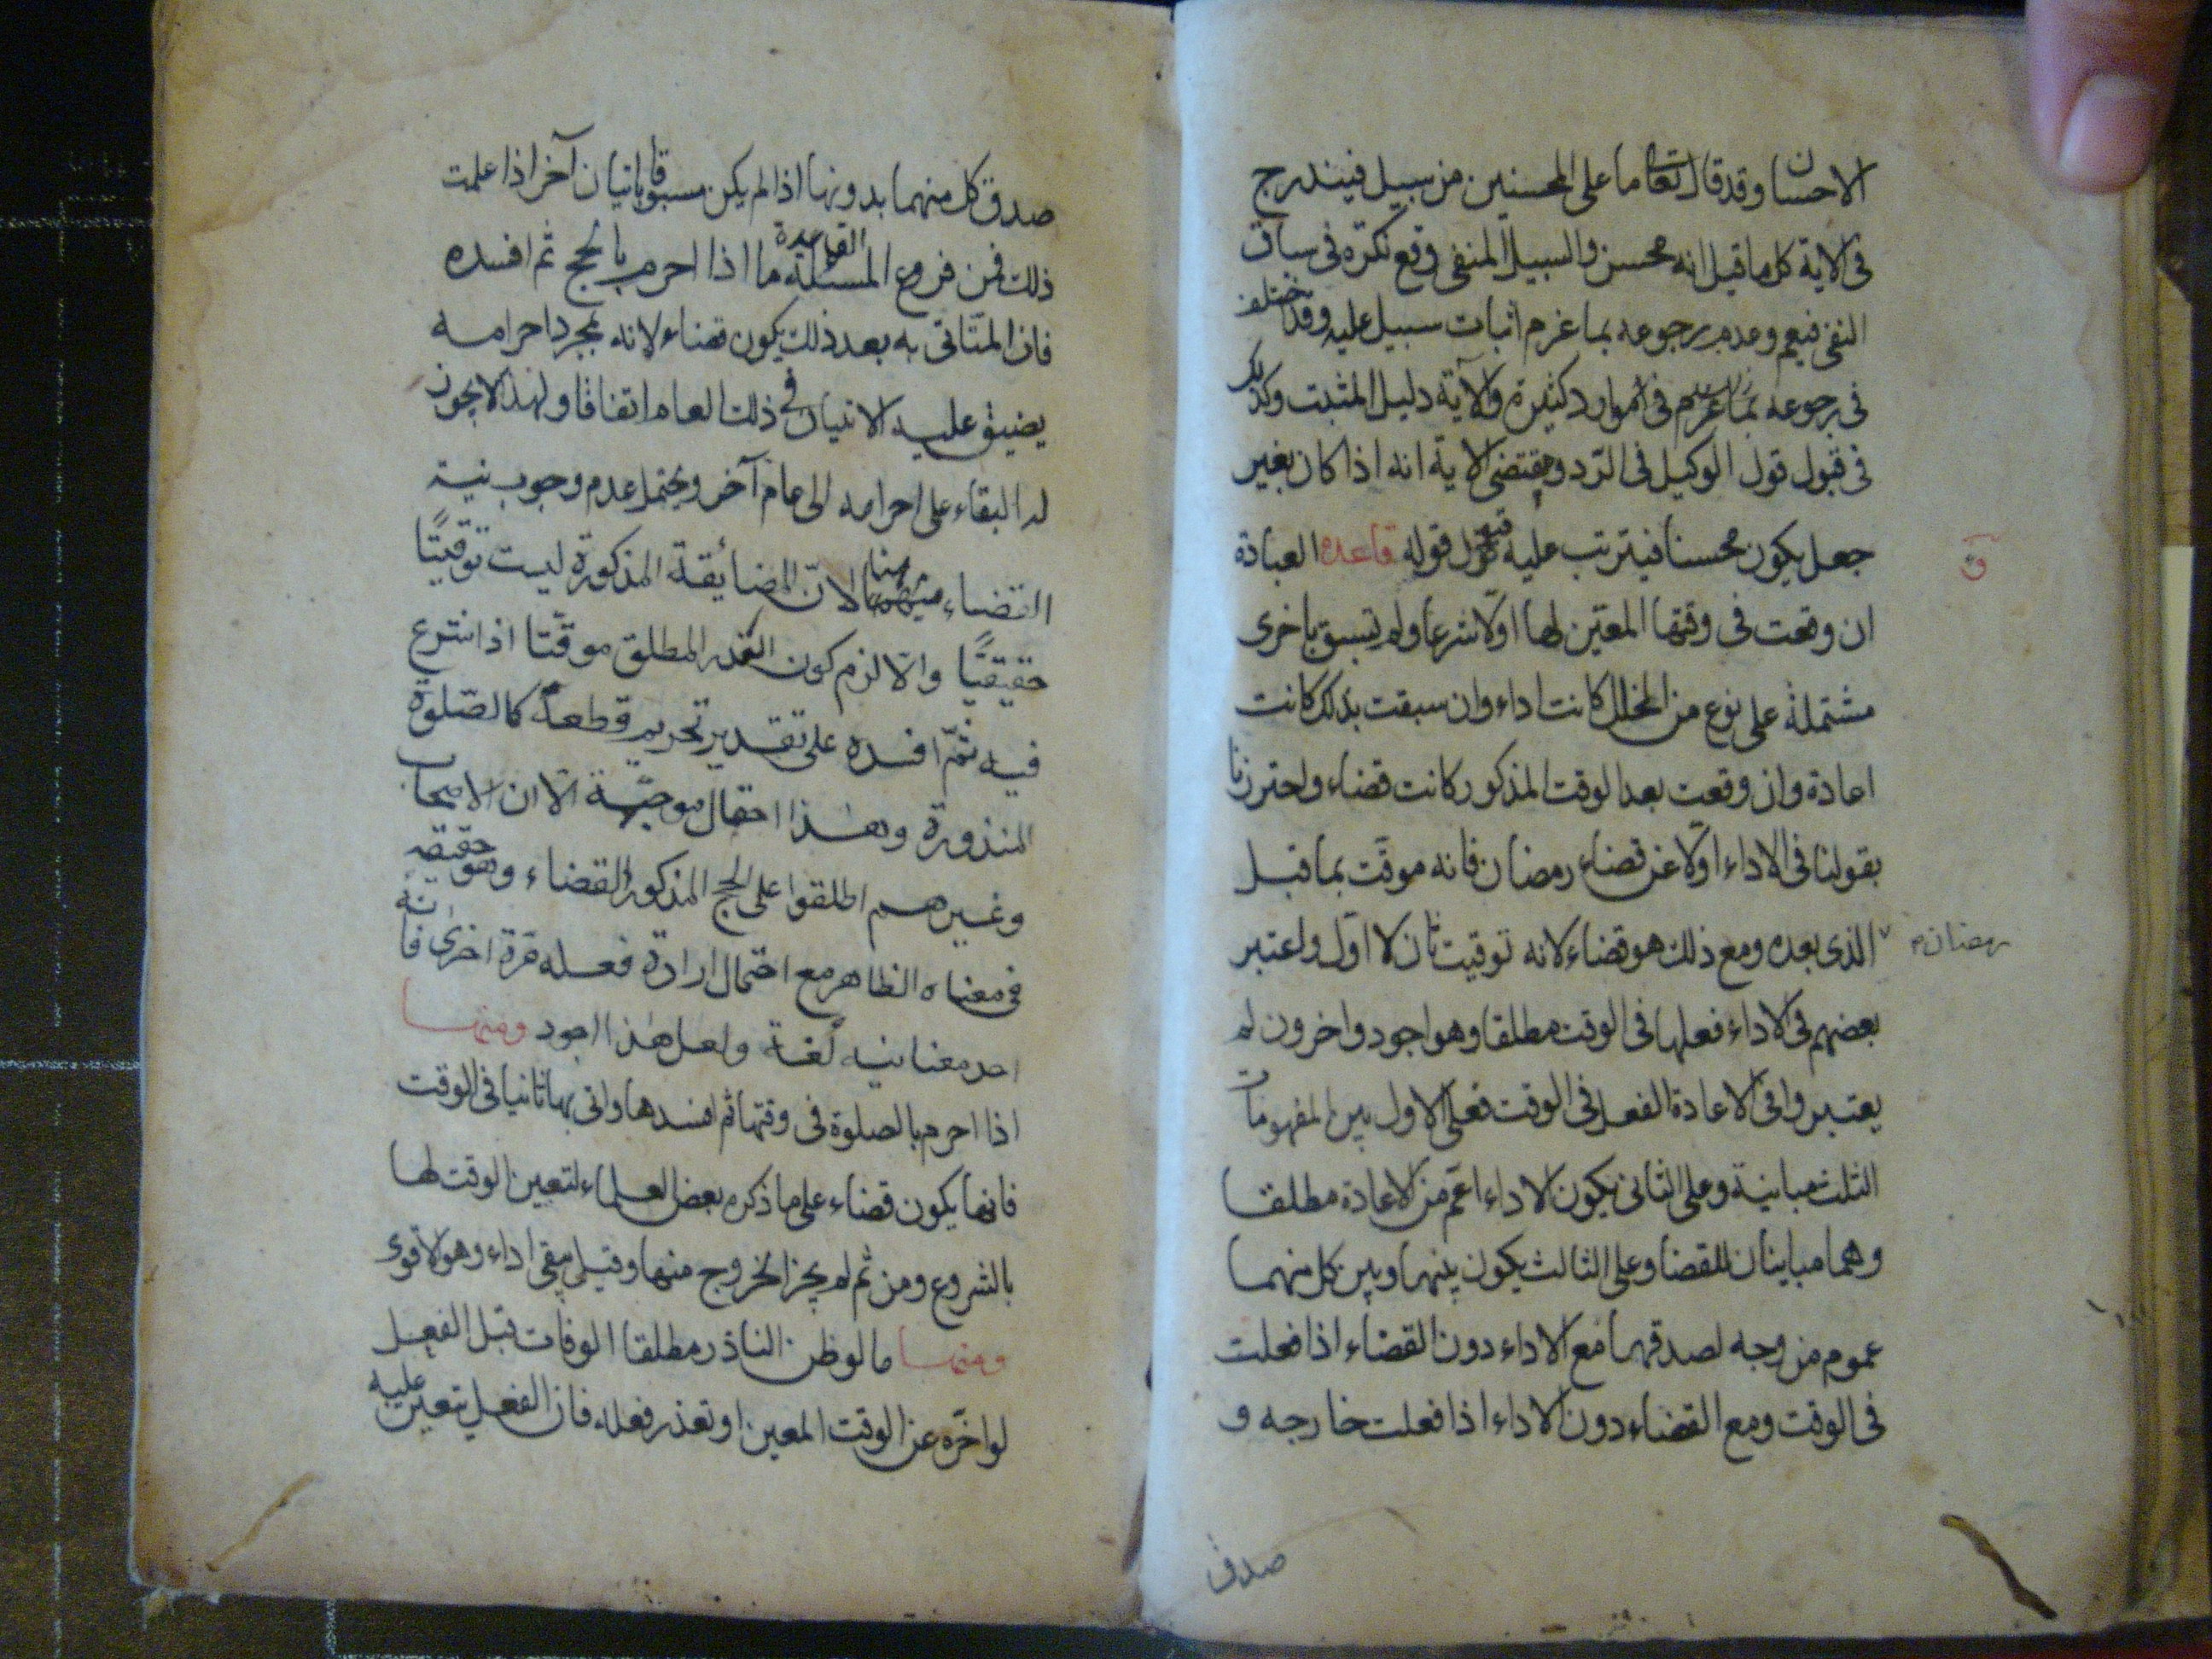 الاحسان وقد قال تعالى ما على المحسنين من سبيل فيندرج
فى الاية كل ما قيل انه محسن والسبيل المنفى وقع نكرة فى سياق
النفى فيعم وعدم رجوعه بما غرم اثبات سبيل عليه وقد اختلف
فى رجوعه بما غرم فى موارد كثيرة والآية دليل المثبت وكذلك
فى قبول قول الوكيل فى الرّد ومقتضى الاية انه اذا كان بغير
جعل يكون محسنا فيترتب عليه قبول قوله قاعدة العبادة
ق
ان وقعت فى وقتها المعين لها اولا شرعا ولم تسبق باخرى
مشتملة على نوع من الخلل كانت اداء وان سبقت بذلك كانت
اعادة وان وقعت بعد الوقت المذكور كانت قضاء واحترزنا
بقولنا فى الاداء اولا عن قضاء رمضان فانه موقت بما قبل
رمضان
الذى بعده ومع ذلك هو قضاء لانه توقيت ثان لا اول واعتبر
بعضهم فى الاداء فعلها فى الوقت مطلقا وهو اجود واخرون لم
يعتبروا فى الاعادة الفعل فى الوقت فعلى الاول بين المفهومات
الثلث مباينة وعلى الثانى يكون الاداء اعم من الاعادة مطلقا
وهما مباينان للقضا وعلى الثالث يكون بينهما وبين كل منهما
عموم من وجه لصدقهما مع الاداء دون القضاء اذا فعلت
فى الوقت ومع القضاء دون الاداء اذا فعلت خارجه و
صدق
صدق كل منهما بدونها اذا لم يكن مسبوقا باتيان آخر اذا علمت
ذلك فمن فروع المسئلة القاعدة ما اذا احرم بالحج ثم افسده
فان المتأتى به بعد ذلك يكون قضاء لانه بمجرد احرامه
يضيق عليه الاتيان فى ذلك العام اتفاقا ولهذا لا يجوز
له البقاء على احرامه الى عام آخر ويحتمل عدم وجوب نية
القضاء هنا لانّ المضائقة المذكورة ليست توقيتًا
حقيقيًا والّا لزم كون النذر المطلق موقتا اذا شرع
فيه ثمّ افسده على تقدير تحريم قطعه كالصّلوة
المنذورة وهذا احتمال موجّه الّا ان الاصحاب
وغيرهم اطلقوا على الحج المذكور القضاء وهو حقيقة
فى معناه الظاهر مع احتمال ارادة فعله مرة اخرى فانه
احد معنانيه لغة ولعل هذا اجود ومنها
اذا احرم بالصلوة فى وقتها ثم افسدها واتى بها ثانيا فى الوقت
فانها يكون قضاء على ما ذكره بعض العلماء لتعين الوقت لها
بالشروع ومن ثم لم يجز الخروج منها وقيل يبقى اداء وهو الاقوى
ومنها ما لو ظن الناذر مطلقا الوفات قبل الفعل
لو اخّره عن الوقت المعين او تعذر فعله فان الفعل يتعين عليه